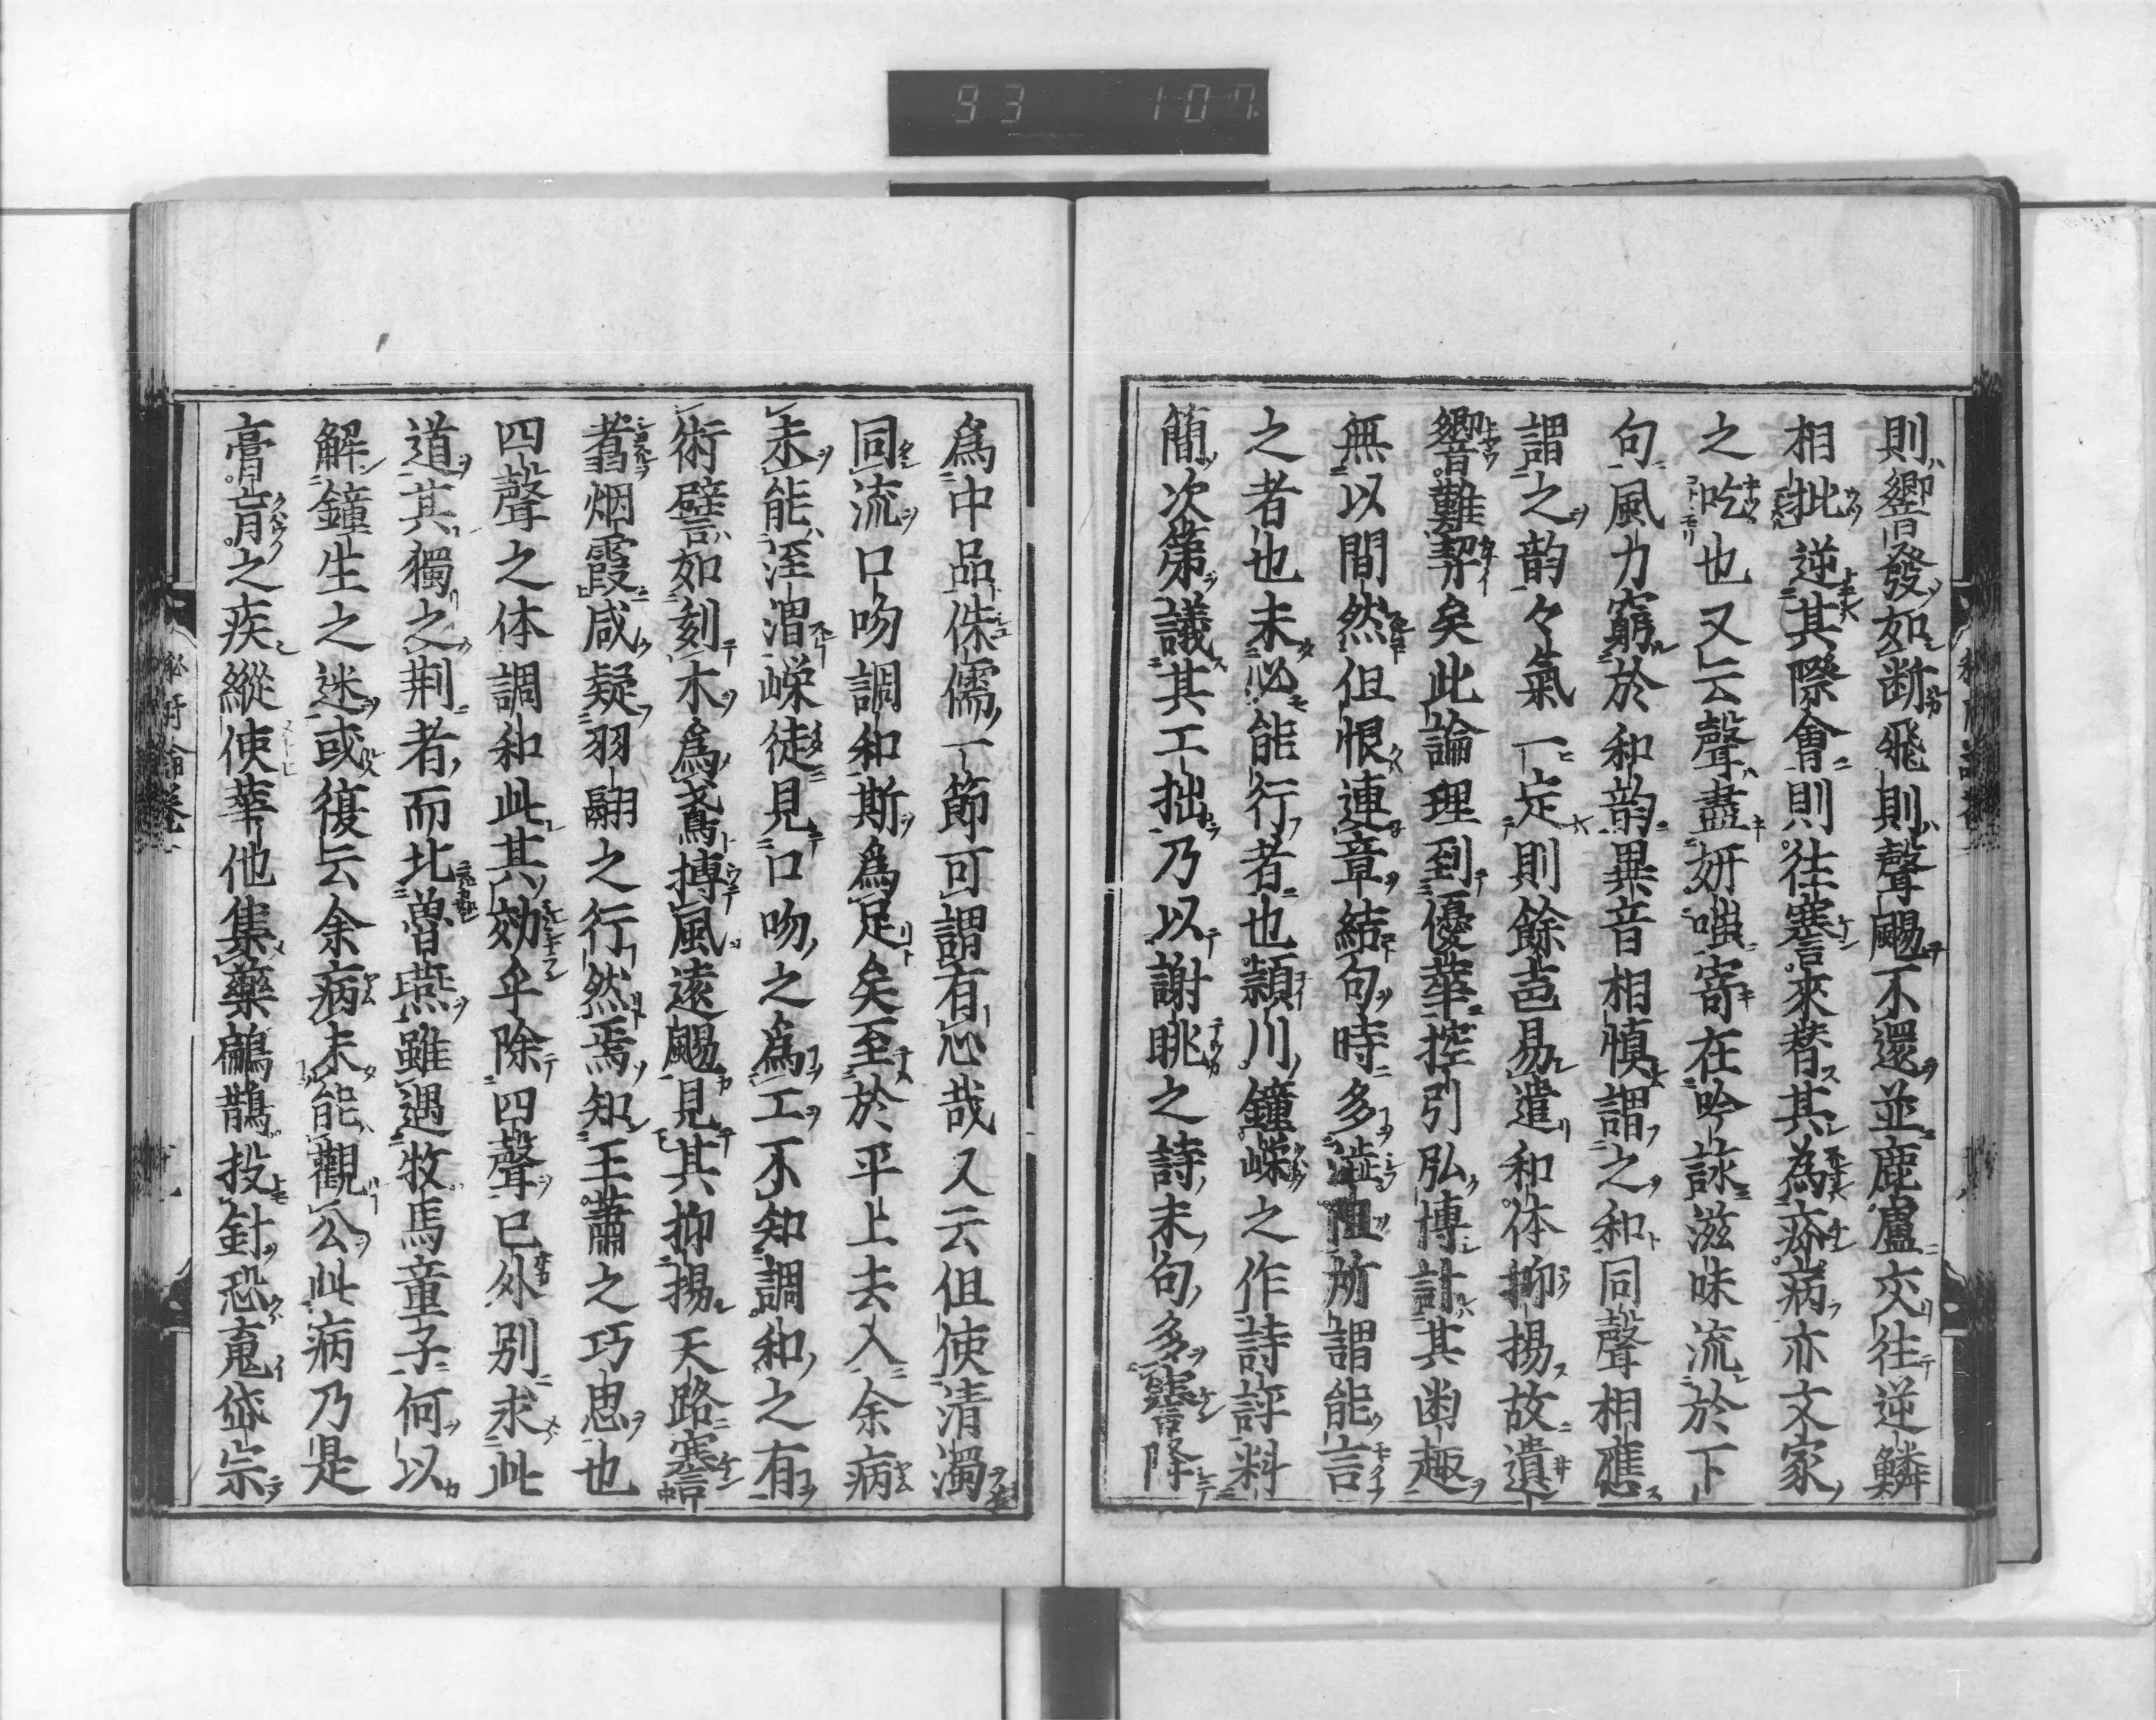 93 107
則響發如断飛則聲颺不還並鹿盧交往逆鱗
相批逆其際會則往蹇來替其為疹病亦文家
之吃也又云聲盡妍嗤寄在吟詠滋味流於下
句風力窮於和韵異音相慎謂之和同聲相應
謂之韵々氣一㝎則餘声易遣和体抑揚故遺
響難契矣此論理到優華控引弘博計其幽趣
無以間然但恨連章結句時多澁阻所謂能言
之者也未必能行者也頴川鐘嶸之作詩評料
簡次第議其工拙乃以謝眺之詩末句多蹇降
爲中品侏儒一節可謂有心哉又云但使清濁
同流口吻調和斯爲足矣至於平上去入余病
未能淫渭嶸徒見口吻之爲工不知調和之有
術譬如刻木爲鳶搏風遠颺見其抑揚天路蹇
翥烟霞咸疑羽翮之行然焉知王蕭之巧思也
四聲之体調和此其効乎除四聲已外别求此
道其獨之荆者而北魯燕雖遇牧馬童子何以
解鐘生之迷或復云余病未能觀公此病乃是
膏肓之疾縱使華他集藥鶣鵲投針恐魂岱宗